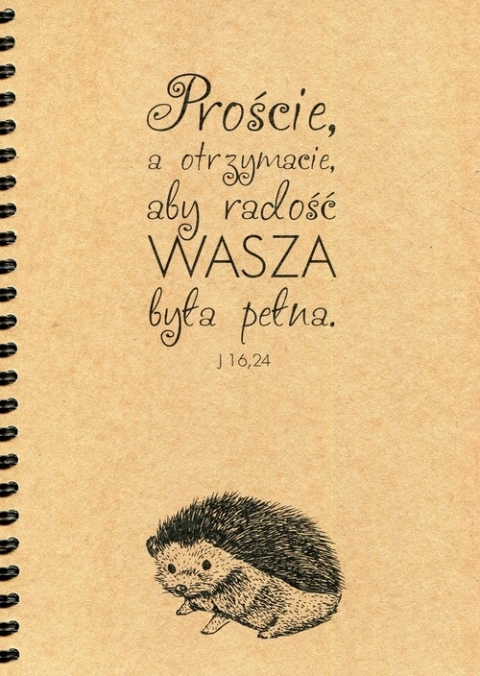 Proście,
a otrzymacie,
aby radość
WASZA
była pełna.
J 16,24